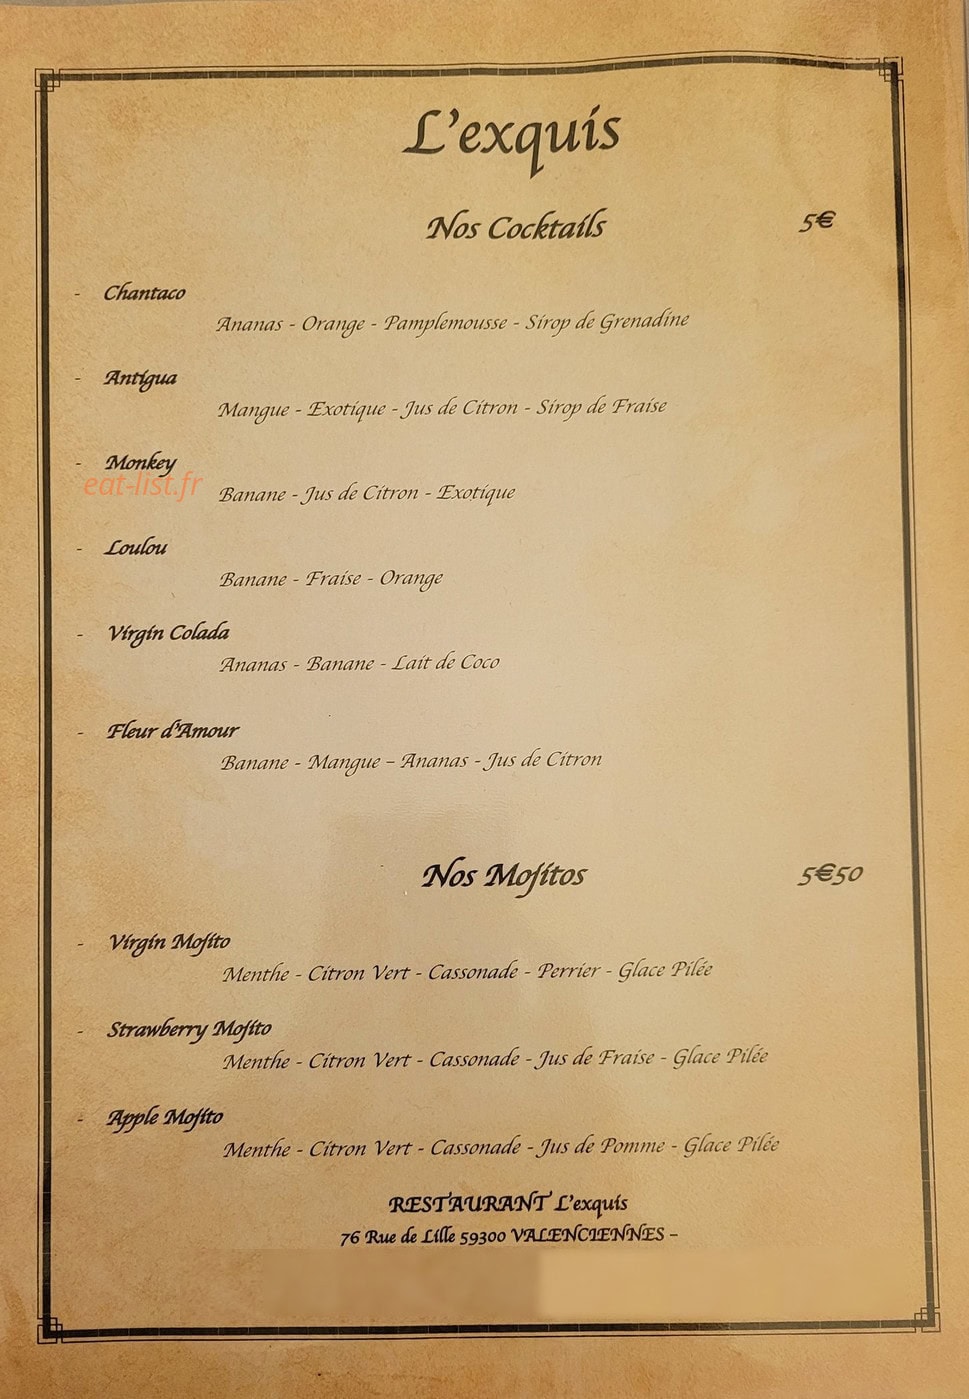 L'exquis
Nos Cocktails 5€
- Chantaco
Ananas - Orange - Pamplemousse - Sirop de Grenadine
- Antigua
Mangue - Exotique - Jus de Citron - Sirop de Fraise
- Monkey
eat-list.fr
Banane - Jus de Citron - Exotique
- Loulou
Banane - Fraise - Orange
- Virgin Colada
Ananas - Banane - Lait de Coco
- Fleur d'Amour
Banane - Mangue – Ananas - Jus de Citron
Nos Mojitos 5€50
- Virgin Mojito
Menthe - Citron Vert - Cassonade - Perrier - Glace Pilée
- Strawberry Mojito
Menthe - Citron Vert - Cassonade - Jus de Fraise - Glace Pilée
- Apple Mojito
Menthe - Citron Vert - Cassonade - Jus de Pomme - Glace Pilée
RESTAURANT L'exquis
76 Rue de Lille 59300 VALENCIENNES –